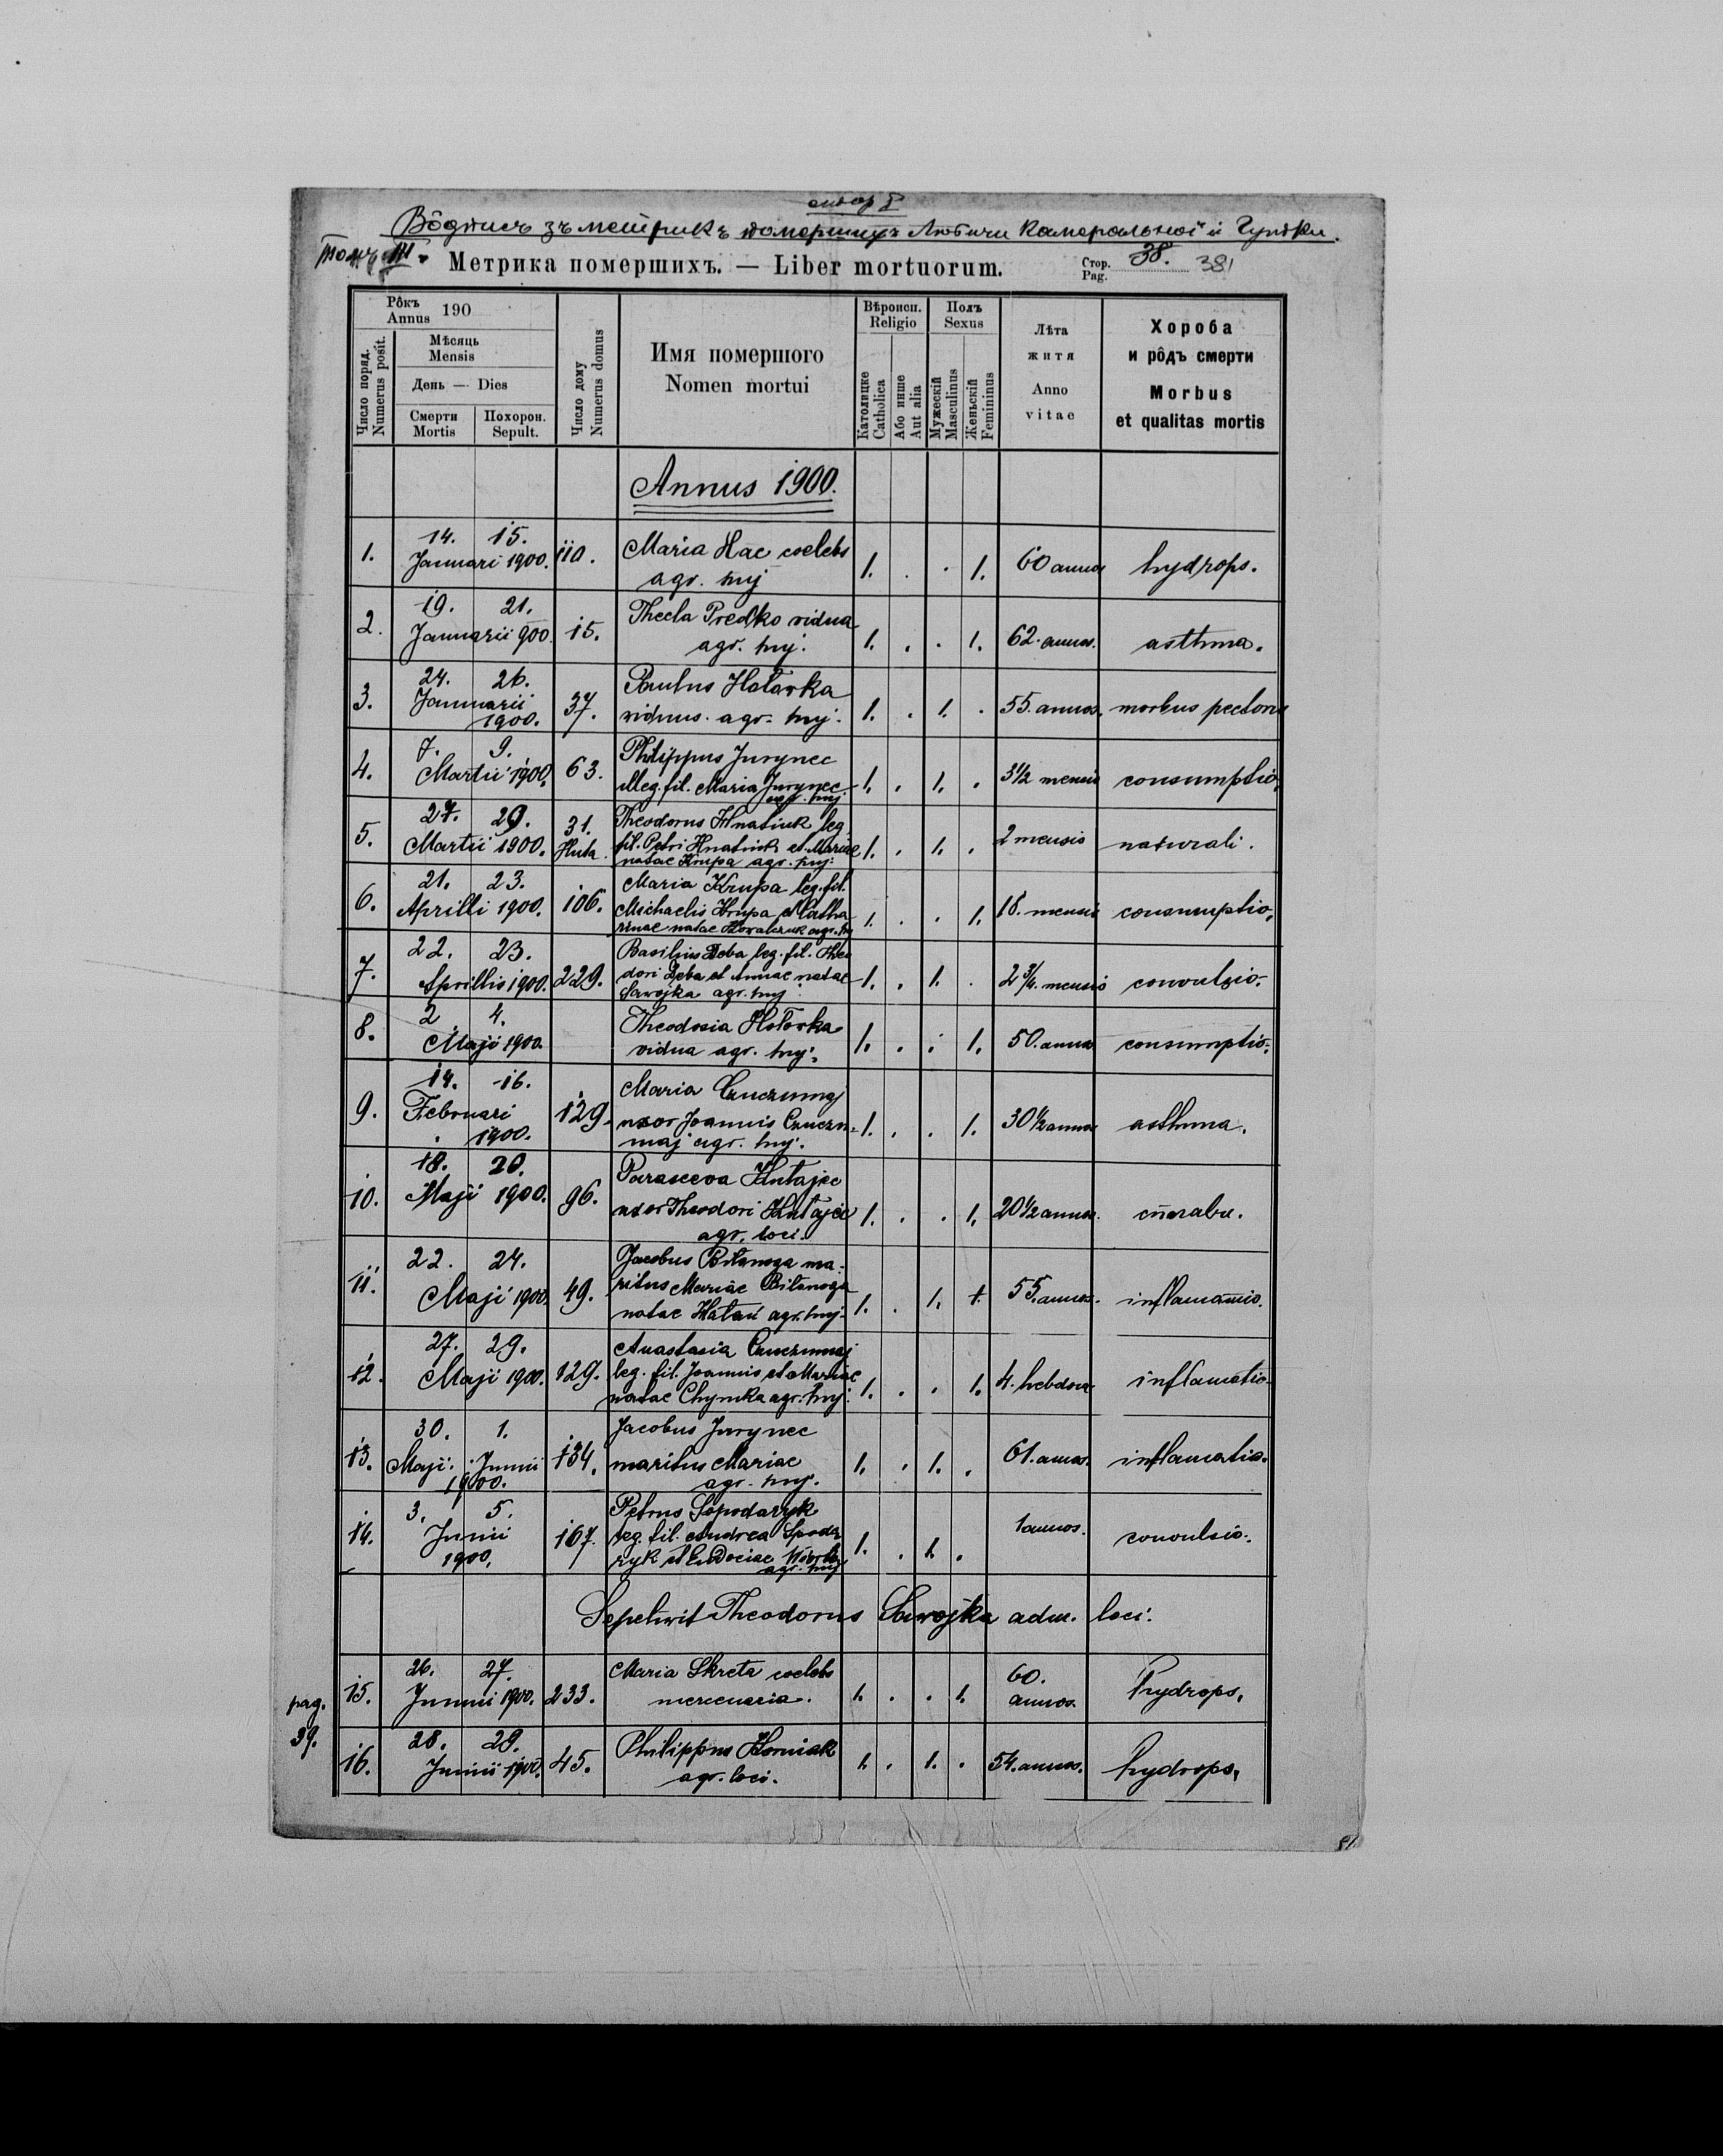 Вôдпись зъ метрикъ померших Любичи Камеральной и Гуты
Томъ III.
Метрика помершихъ. — Liber mortuorum.
Стор. Pag. 38. 381
Рôкъ Annus 190
Число поряд. Numerus posit.
Мѣсяць Mensis
День — Dies
Смерти Mortis
Похорон. Sepult.
Число дому Numerus domus
Имя помершого
Nomen mortui
Вѣроисп. Religio
Католицке Catholica
Або инше Aut alia
Полъ Sexus
Мужескій Masculinus
Женьскій Femininus
Лѣта житя
Anno vitae
Хороба
и рôдъ смерти
Morbus
et qualitas mortis
Annus 1900.
1. 14. 15. Januari 1900. 110. Maria Hac coelebs agr. huj 1. . . 1. 60 annos hydrops.
2. 19. 21. Januarii 900. 15. Thecla Predko vidua agr. huj. 1. . . 1. 62. annos. asthma.
3. 24. 26. Januarii 1900. 37. Paulus Hotorka viduus. agr. huj. 1. . 1. . 55. annos. morbus pectoris
4. 7. 9. Martii 1900. 63. Philippus Jurynec illeg. fil. Maria Jurynec agr. huj 1. . 1. . 3 1/2 mensis consumptio.
5. 27. 29. Martii 1900. 31. Huta. Theodorus Hnatiuk leg. fil. Petri Hnatiuk et Mariae natae Krupa agr. huj. 1. . 1. . 2 mensis naturali.
6. 21. 23. Aprilli 1900. 106. Maria Krupa leg. fil. Michaelis Krupa et Catharinae natae Kowalczuk agr. huj 1. . . 1. 18. mensis consumptio.
7. 22. 23. Aprillis 1900. 229. Basilius Deba leg. fil. Theodori Deba et Annae natae Sawojka agr. huj. 1. . 1. . 2 3/4. mensis convulsio.
8. 2 4. Maji 1900. Theodosia Hotorka vidua agr. huj. 1. . . 1. 50. annos consumptio.
9. 14. 16. Februari 1900. 129. Maria Cruczmaj uxor Joannis agr. huj. 1. . . 1. 30 1/2 annos asthma.
10. 18. 20. Maji 1900. 96. Parasceva Hutajec uxor Theodori Hutajec agr. loci. 1. . . 1. 20 1/2 annos.
11. 22. 24. Maji 1900. 49. Jacobus Bitanoga maritus Mariae Bitanoga natae agr. huj. 1. . 1. 55. annos. inflamatio.
12. 27. 29. Maji 1900. 129. Anastasia Cruczmaj leg. fil. Joannis et Mariae natae Chymka agr. huj. 1. . . 1. 4. hebdom. inflamatio
13. 30. 1. Maji. Junii 1900. 134. Jacobus Jurynec maritus Mariae agr. huj. 1. . 1. . 61. annos. inflamatio.
14. 3. 5. Junii 1900. 167. Petrus leg. fil. Andrea et Eudociae agr. huj 1. . 1. . 1 annos. convulsio.
Sepelivit Theodorus Sawojka adm. loci.
pag. 39.
15. 26. 27. Junii 1900. 233. Maria Skreta coelebs mercenaria. 1. . . 1. 60. annos. hydrops.
16. 28. 29. Junii 1900. 45. Philippus Horniak agr. loci. 1. . 1. . 54. annos. hydrops.